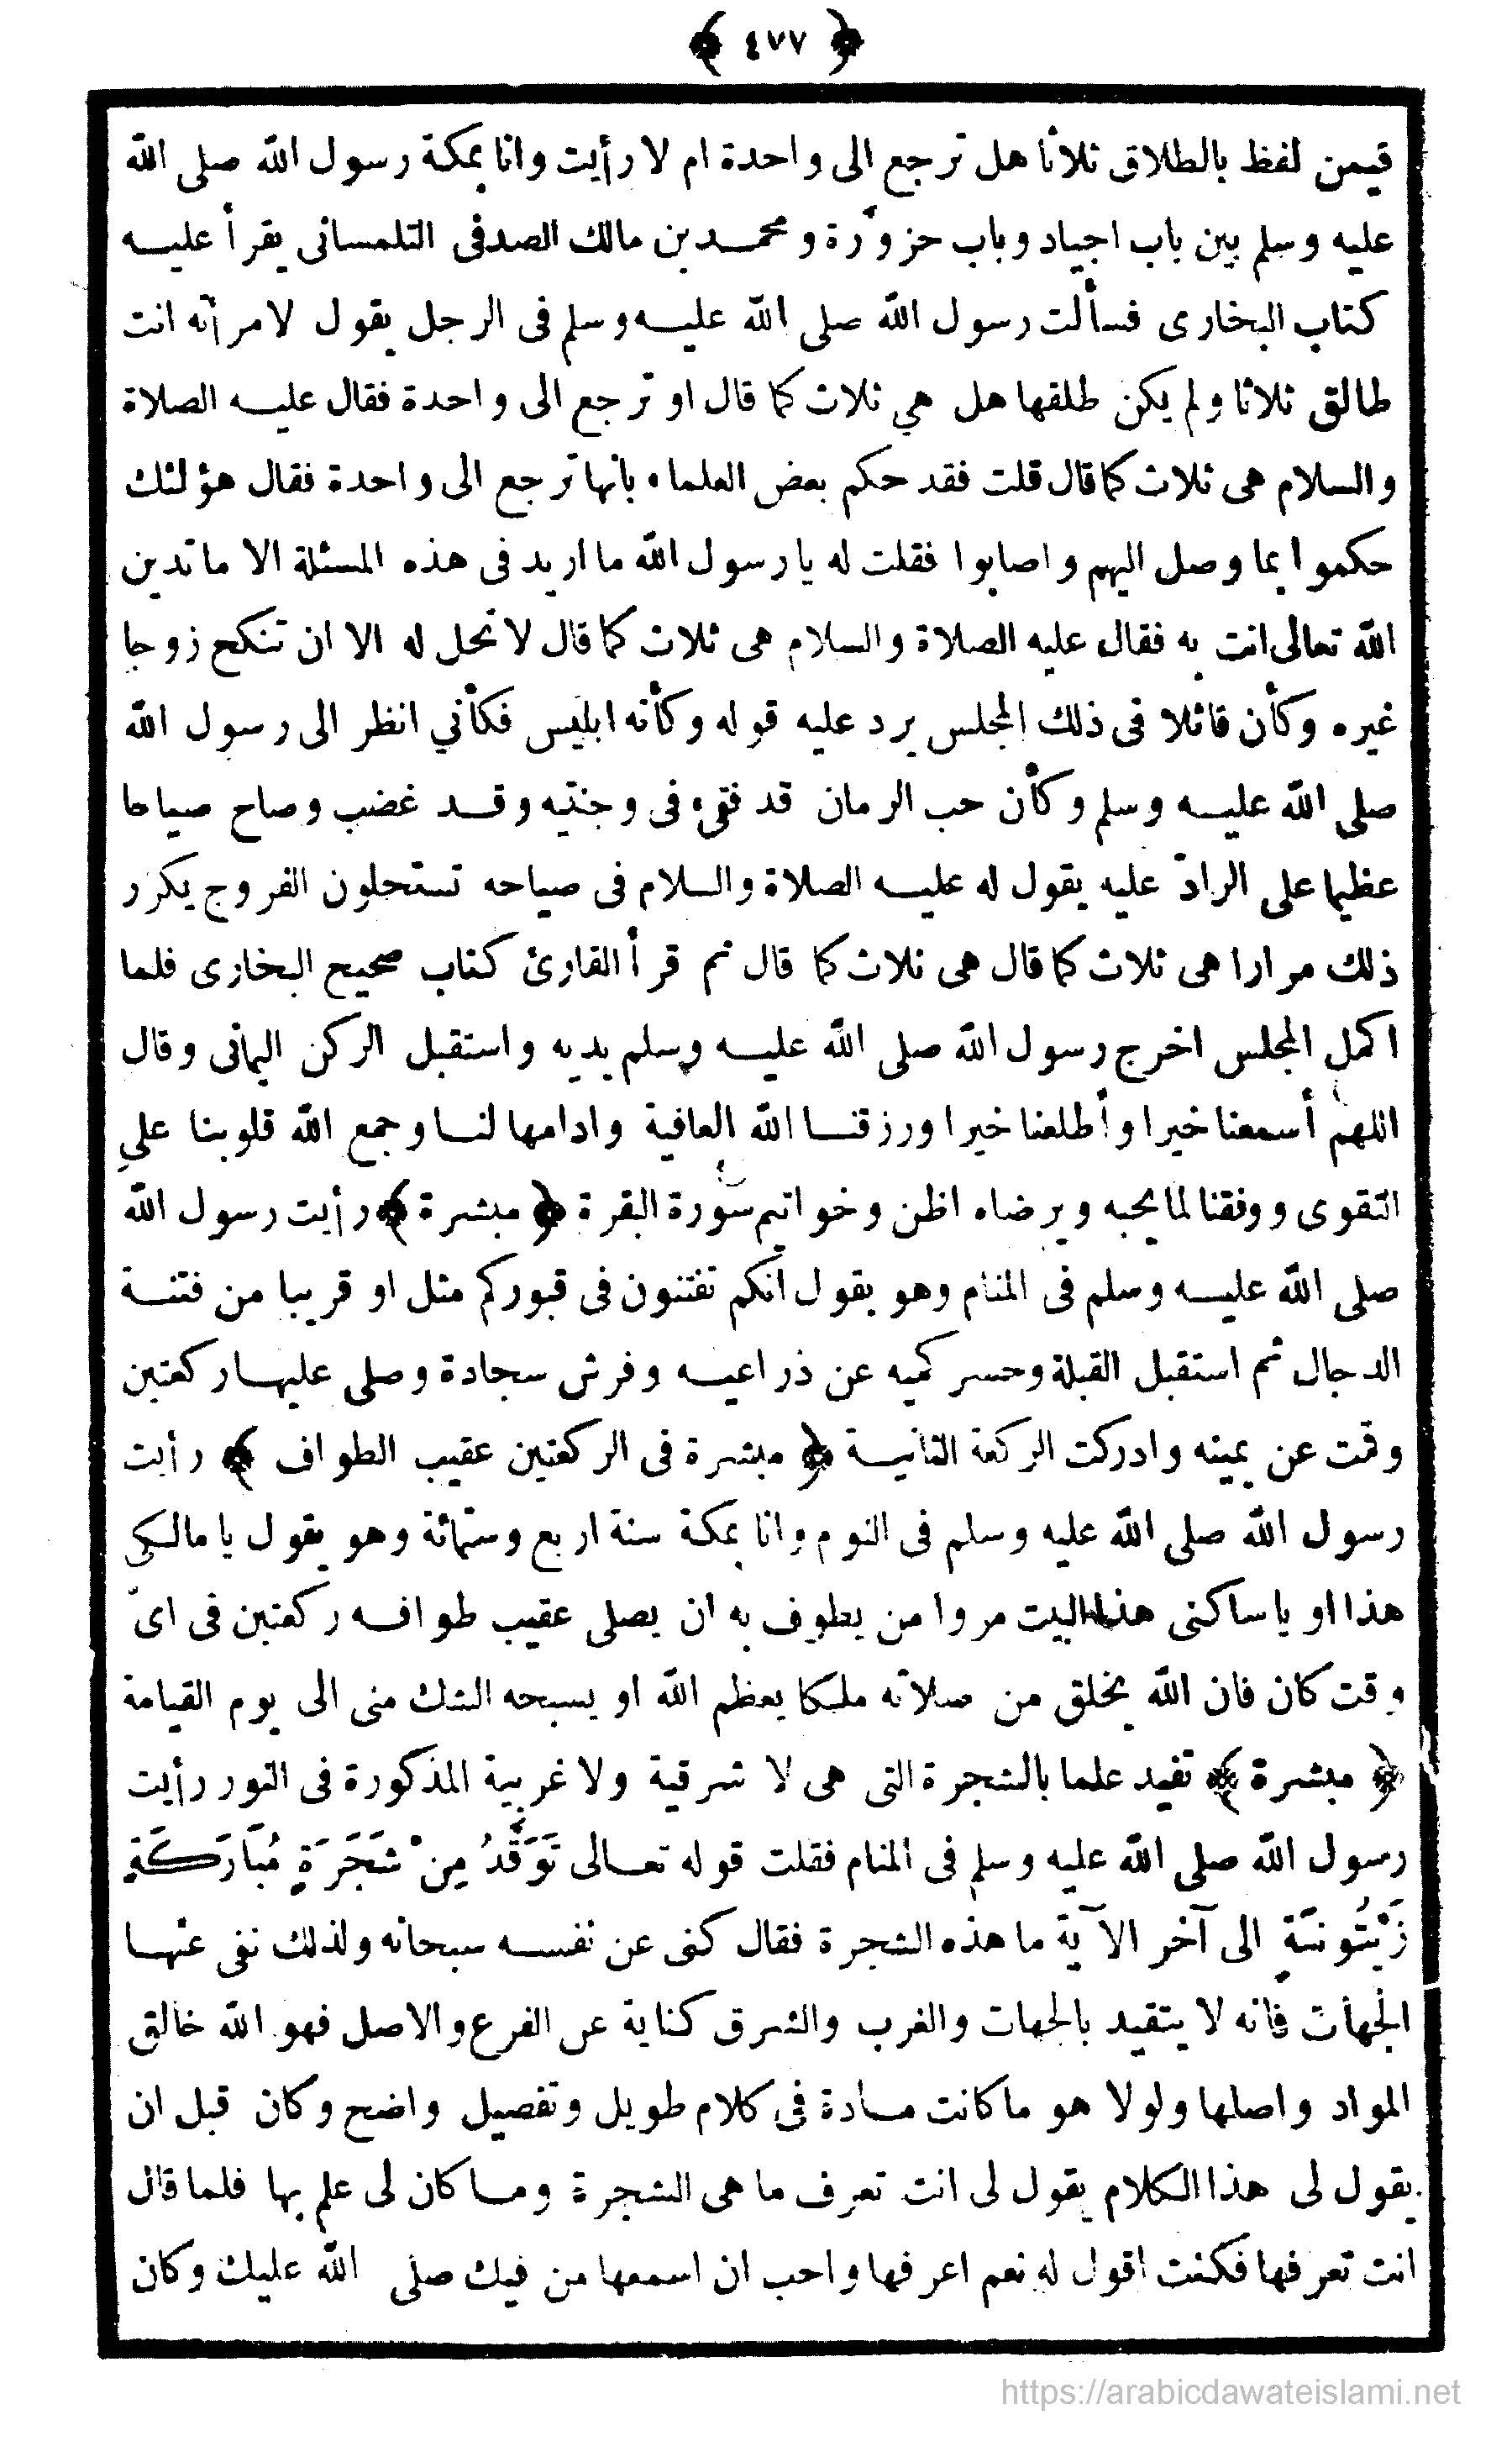 ﴿ ٤٧٧ ﴾
فيمن لفظ بالطلاق ثلاثا هل ترجع الى واحدة ام لا رأيت وانا بمكة رسول الله صلى الله
عليه وسلم بين باب اجياد وباب حزورة ومحمد بن مالك الصدفى التلمسانى يقرأ عليه
كتاب البخارى فسألت رسول الله صلى الله عليه وسلم فى الرجل يقول لامرأته انت
طالق ثلاثا ولم يكن طلقها هل هي ثلاث كما قال او ترجع الى واحدة فقال عليه الصلاة
والسلام هى ثلاث كما قال قلت فقد حكم بعض العلماء بانها ترجع الى واحدة فقال هؤلئك
حكموا بما وصل اليهم واصابوا فقلت له يا رسول الله ما اريد فى هذه المسئلة الا ما تدين
الله تعالى انت به فقال عليه الصلاة والسلام هى ثلاث كما قال لا تحل له الا ان تنكح زوجا
غيره وكأن قائلا فى ذلك المجلس يرد عليه قوله وكأنه ابليس فكأني انظر الى رسول الله
صلى الله عليه وسلم وكأن حب الرمان قد فقىء فى وجنتيه وقد غضب وصاح صياحا
عظيما على الرادّ عليه يقول له عليه الصلاة والسلام فى صياحه تستحلون الفروج يكرر
ذلك مرارا هى ثلاث كما قال هى ثلاث كما قال ثم قرأ القارئ كتاب صحيح البخارى فلما
اكمل المجلس اخرج رسول الله صلى الله عليه وسلم يديه واستقبل الركن اليمانى وقال
اللهم أسمعنا خيرا وأطلعنا خيرا ورزقنا الله العافية وادامها لنا وجمع الله قلوبنا على
التقوى ووفقنا لما يحبه ويرضاه اظن وخواتيم سورة البقرة ﴿ مبشرة ﴾ رأيت رسول الله
صلى الله عليه وسلم فى المنام وهو يقول انكم تفتنون فى قبوركم مثل او قريبا من فتنة
الدجال ثم استقبل القبلة وحسر كميه عن ذراعيه وفرش سجادة وصلى عليها ركعتين
وقمت عن يمينه وادركت الركعة الثانية ﴿ مبشرة فى الركعتين عقيب الطواف ﴾ رأيت
رسول الله صلى الله عليه وسلم فى النوم وانا بمكة سنة اربع وستمائة وهو يقول يا مالكى
هذا او يا ساكنى هذا البيت مروا من يطوف به ان يصلى عقيب طوافه ركعتين فى اىّ
وقت كان فان الله يخلق من صلاته ملكا يعظم الله او يسبحه الشك منى الى يوم القيامة
﴿ مبشرة ﴾ تفيد علما بالشجرة التى هى لا شرقية ولا غربية المذكورة فى النور رأيت
رسول الله صلى الله عليه وسلم فى المنام فقلت قوله تعالى تَوَقَّدُ مِنْ شَجَرَةٍ مُبَارَكَةٍ
زَيْتُونَةٍ الى آخر الآية ما هذه الشجرة فقال كنى عن نفسه سبحانه ولذلك نفى عنها
الجهات فانه لا يتقيد بالجهات والغرب والشرق كناية عن الفرع والاصل فهو الله خالق
المواد واصلها ولولا هو ما كانت مادة فى كلام طويل وتفصيل واضح وكان قبل ان
يقول لى هذا الكلام يقول لى انت تعرف ما هى الشجرة وما كان لى علم بها فلما قال
انت تعرفها فكنت اقول له نعم اعرفها واحب ان اسمعها من فيك صلى الله عليك وكان
https://arabicdawateislami.net